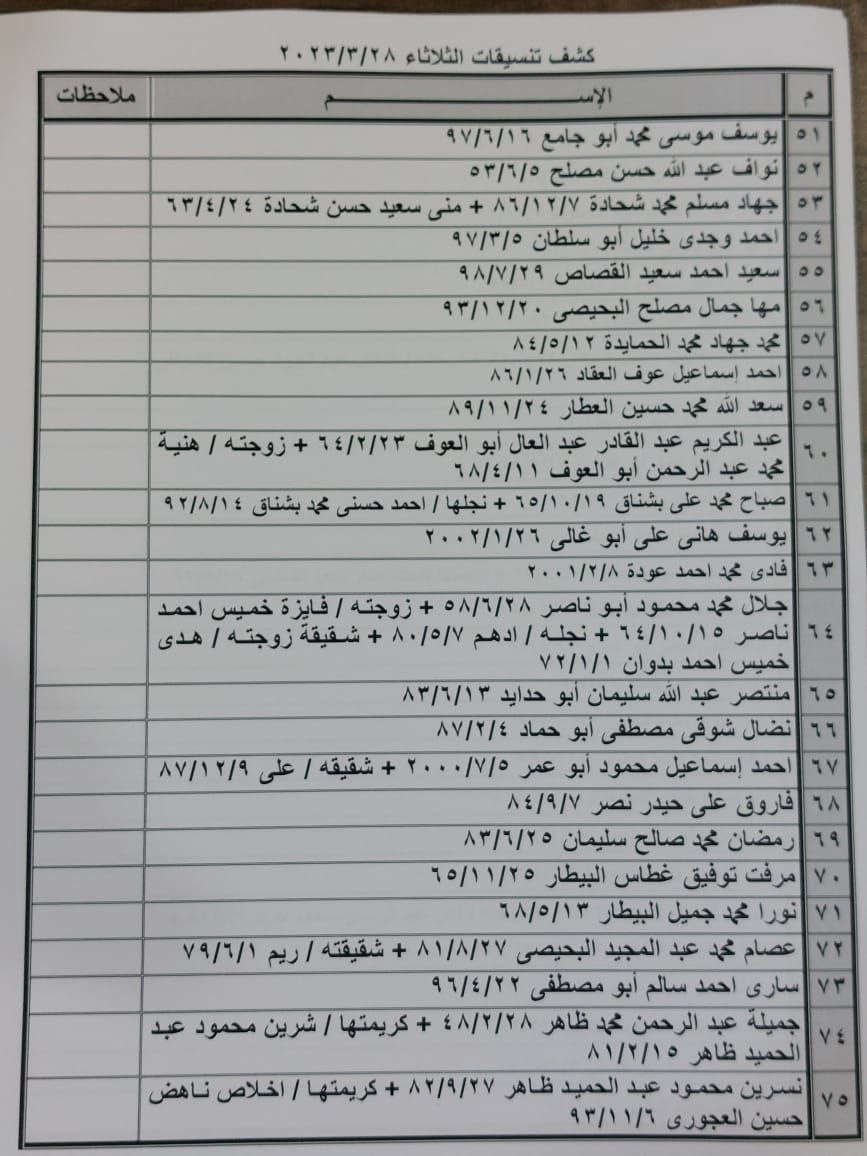 كشف تنسيقات الثلاثاء ٢٠٢٣/٣/٢٨
م الإســـــــــــم ملاحظات
٥١ يوسف موسى محمد أبو جامع ٩٧/٦/١٦
٥٢ نواف عبد الله حسن مصلح ٥٣/٦/٥
٥٣ جهاد مسلم محمد شحادة ٨٦/١٢/٧ + منى سعيد حسن شحادة ٦٣/٤/٢٤
٥٤ احمد وجدى خليل أبو سلطان ٩٧/٣/٥
٥٥ سعيد احمد سعيد القصاص ٩٨/٧/٢٩
٥٦ مها جمال مصلح البحيصى ٩٣/١٢/٢٠
٥٧ محمد جهاد محمد الحمايدة ٨٤/٥/١٢
٥٨ احمد إسماعيل عوف العقاد ٨٦/١/٢٦
٥٩ سعد الله محمد حسين العطار ٨٩/١١/٢٤
٦٠ عبد الكريم عبد القادر عبد العال أبو العوف ٦٤/٢/٢٣ + زوجته / هنية
محمد عبد الرحمن أبو العوف ٦٨/٤/١١
٦١ صباح محمد على بشناق ٦٥/١٠/١٩ + نجلها / احمد حسنى محمد بشناق ٩٢/٨/١٤
٦٢ يوسف هانى على أبو غالى ٢٠٠٢/١/٢٦
٦٣ فادى محمد احمد عودة ٢٠٠١/٢/٨
٦٤ جلال محمد محمود أبو ناصر ٥٨/٦/٢٨ + زوجته / فايزة خميس احمد
ناصر ٦٤/١٠/١٥ + نجله / ادهم ٨٠/٥/٧ + شقيقة زوجته / هدى
خميس احمد بدوان ٧٢/١/١
٦٥ منتصر عبد الله سليمان أبو حدايد ٨٣/٦/١٣
٦٦ نضال شوقى مصطفى أبو حماد ٨٧/٢/٤
٦٧ احمد إسماعيل محمود أبو عمر ٢٠٠٠/٧/٥ + شقيقه / على ٨٧/١٢/٩
٦٨ فاروق على حيدر نصر ٨٤/٩/٧
٦٩ رمضان محمد صالح سليمان ٨٣/٦/٢٥
٧٠ مرفت توفيق غطاس البيطار ٦٥/١١/٢٥
٧١ نورا محمد جميل البيطار ٦٨/٥/١٣
٧٢ عصام محمد عبد المجيد البحيصى ٨١/٨/٢٧ + شقيقته / ريم ٧٩/٦/١
٧٣ سارى احمد سالم أبو مصطفى ٩٦/٤/٢٢
٧٤ جميلة عبد الرحمن محمد ظاهر ٤٨/٢/٢٨ + كريمتها / شرين محمود عبد
الحميد ظاهر ٨١/٢/١٥
٧٥ نسرين محمود عبد الحميد ظاهر ٨٢/٩/٢٧ + كريمتها / اخلاص ناهض
حسين العجورى ٩٣/١١/٦